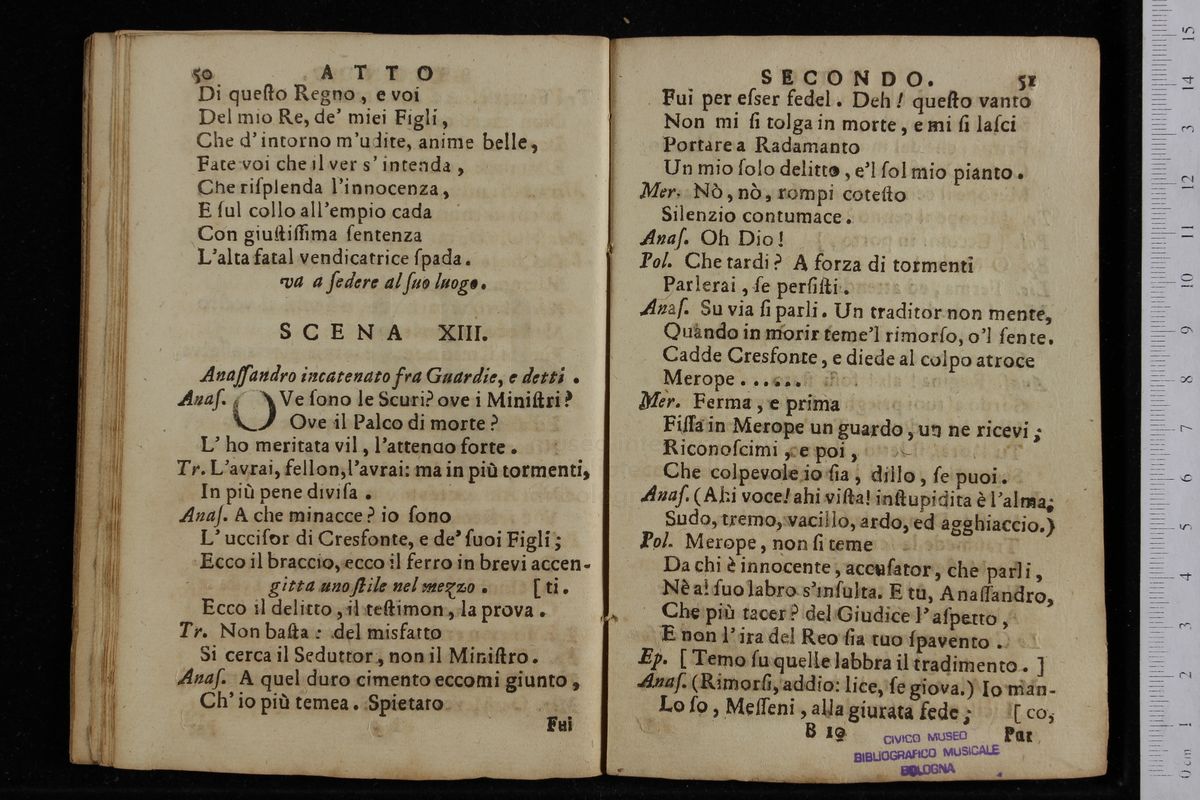 50 ATTO
Di queſto Regno, e voi
Del mio Re, de' miei Figli,
Che d'intorno m'udite, anime belle,
Fate voi che il ver s'intenda,
Che riſplenda l'innocenza,
E ſul collo all'empio cada
Con giuſtiſſima ſentenza
L'alta fatal vendicatrice ſpada.
va a ſedere al ſuo luogo.
SCENA XIII.
Anaſſandro incatenato fra Guardie, e detti.
Anaſ. OVe ſono le Scuri? ove i Miniſtri?
Ove il Palco di morte?
L'ho meritata vil, l'attendo forte.
Tr. L'avrai, fellon, l'avrai: ma in più tormenti,
In più pene diviſa.
Anaſ. A che minacce? io ſono
L'ucciſor di Cresfonte, e de' ſuoi Figli;
Ecco il braccio, ecco il ferro in brevi accen-
gitta uno ſtile nel mezzo. [ti.
Ecco il delitto, il teſtimon, la prova.
Tr. Non baſta: del misfatto
Si cerca il Seduttor, non il Miniſtro.
Anaſ. A quel duro cimento eccomi giunto,
Ch'io più temea. Spietato
Fui
SECONDO. 51
Fui per eſser fedel. Deh! queſto vanto
Non mi ſi tolga in morte, e mi ſi laſci
Portare a Radamanto
Un mio ſolo delitto, e'l ſol mio pianto.
Mer. Nò, nò, rompi coteſto
Silenzio contumace.
Anaſ. Oh Dio!
Pol. Che tardi? A forza di tormenti
Parlerai, ſe perſiſti.
Anaſ. Su via ſi parli. Un traditor non mente,
Quando in morir teme'l rimorſo, o'l ſente.
Cadde Cresfonte, e diede al colpo atroce
Merope......
Mer. Ferma, e prima
Fiſſa in Merope un guardo, un ne ricevi;
Riconoſcimi, e poi,
Che colpevole io ſia, dillo, ſe puoi.
Anaſ. (Ahi voce! ahi viſta! inſtupidita è l'alma;
Sudo, tremo, vacillo, ardo, ed agghiaccio.)
Pol. Merope, non ſi teme
Da chi è innocente, accuſator, che parli,
Nè al ſuo labro s'inſulta. E tu, Anaſſandro,
Che più tacer? del Giudice l'aſpetto,
E non l'ira del Reo ſia tuo ſpavento.
Ep. [Temo ſu quelle labbra il tradimento.]
Anaſ. (Rimorſi, addio: lice, ſe giova.) Io man-
Lo ſo, Meſſeni, alla giurata fede; [co,
B 10 Pur
CIVICO MUSEO
BIBLIOGRAFICO MUSICALE
BOLOGNA
15
14
13
12
11
10
9
8
7
6
5
4
3
2
1
0 cm